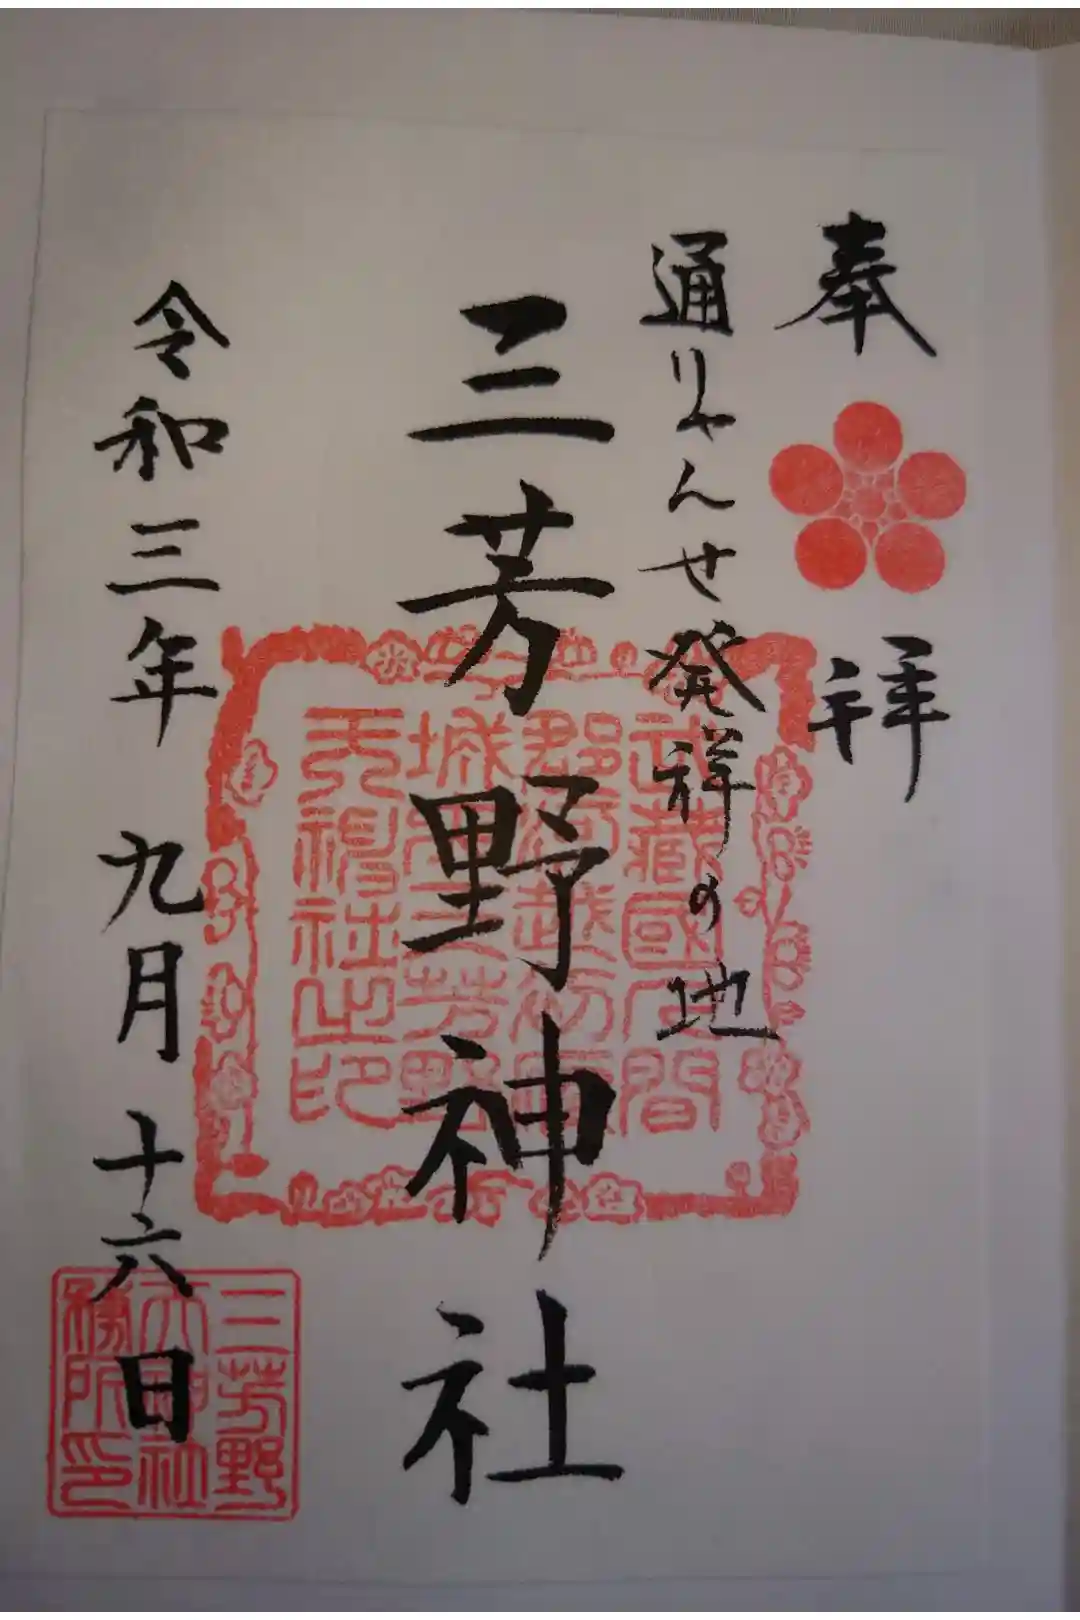 奉拝
通りゃんせ発祥の地
三芳野神社
令和三年 九月 十六日
武蔵國入間
郡河越初雁
城内三芳野
天神社之印
三芳野
天神社
務所印